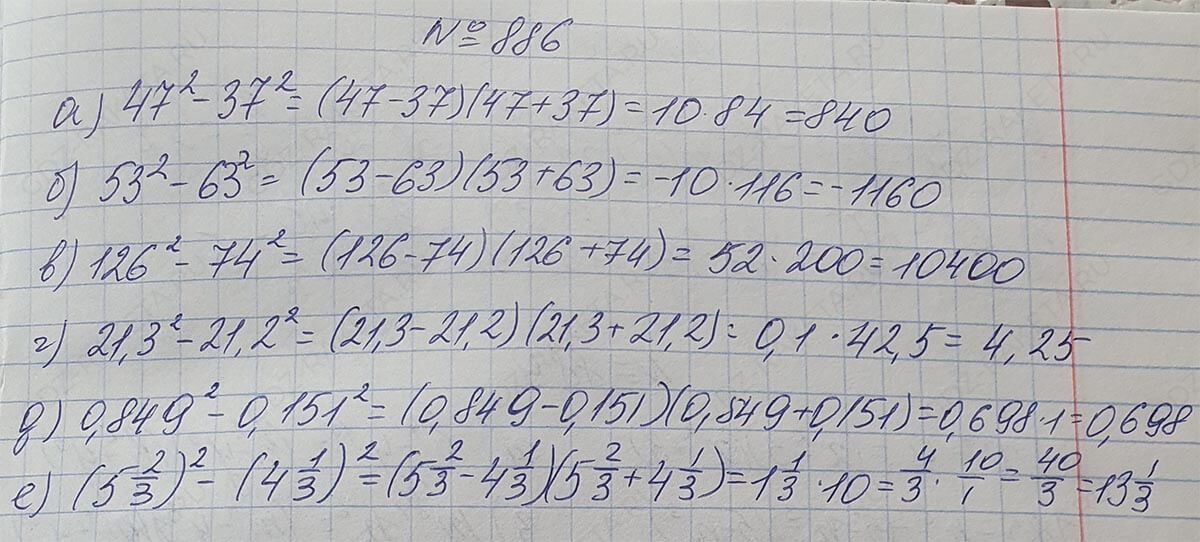 № 886
а) 47² - 37² = (47-37)(47+37) = 10·84 = 840
б) 53² - 63² = (53-63)(53+63) = -10·116 = -1160
в) 126² - 74² = (126-74)(126+74) = 52·200 = 10400
г) 21,3² - 21,2² = (21,3-21,2)(21,3+21,2) = 0,1·42,5 = 4,25
д) 0,849² - 0,151² = (0,849-0,151)(0,849+0,151) = 0,698·1 = 0,698
е) (5 2/3)² - (4 1/3)² = (5 2/3 - 4 1/3)(5 2/3 + 4 1/3) = 1 1/3 · 10 = 4/3 · 10/1 = 40/3 = 13 1/3